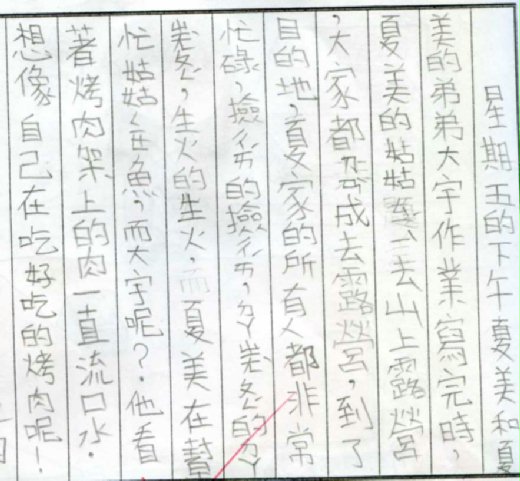 星期五的下午夏美和夏
美的弟弟大宇作業寫完時,
夏美的姑姑去山上露營
,大家都成去露營,到了
目的地,夏家的所有人都非常
忙碌,撿的撿,的
,生火的生火,而夏美在幫
忙姑姑魚,而大宇呢?他看
著烤肉架上的肉一直流口水.
想像自己在吃好吃的烤肉呢!